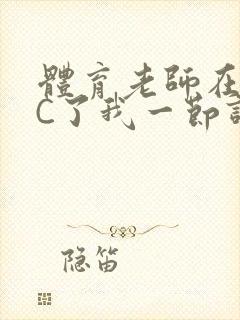 體育老師在
C了我一節
隐笛